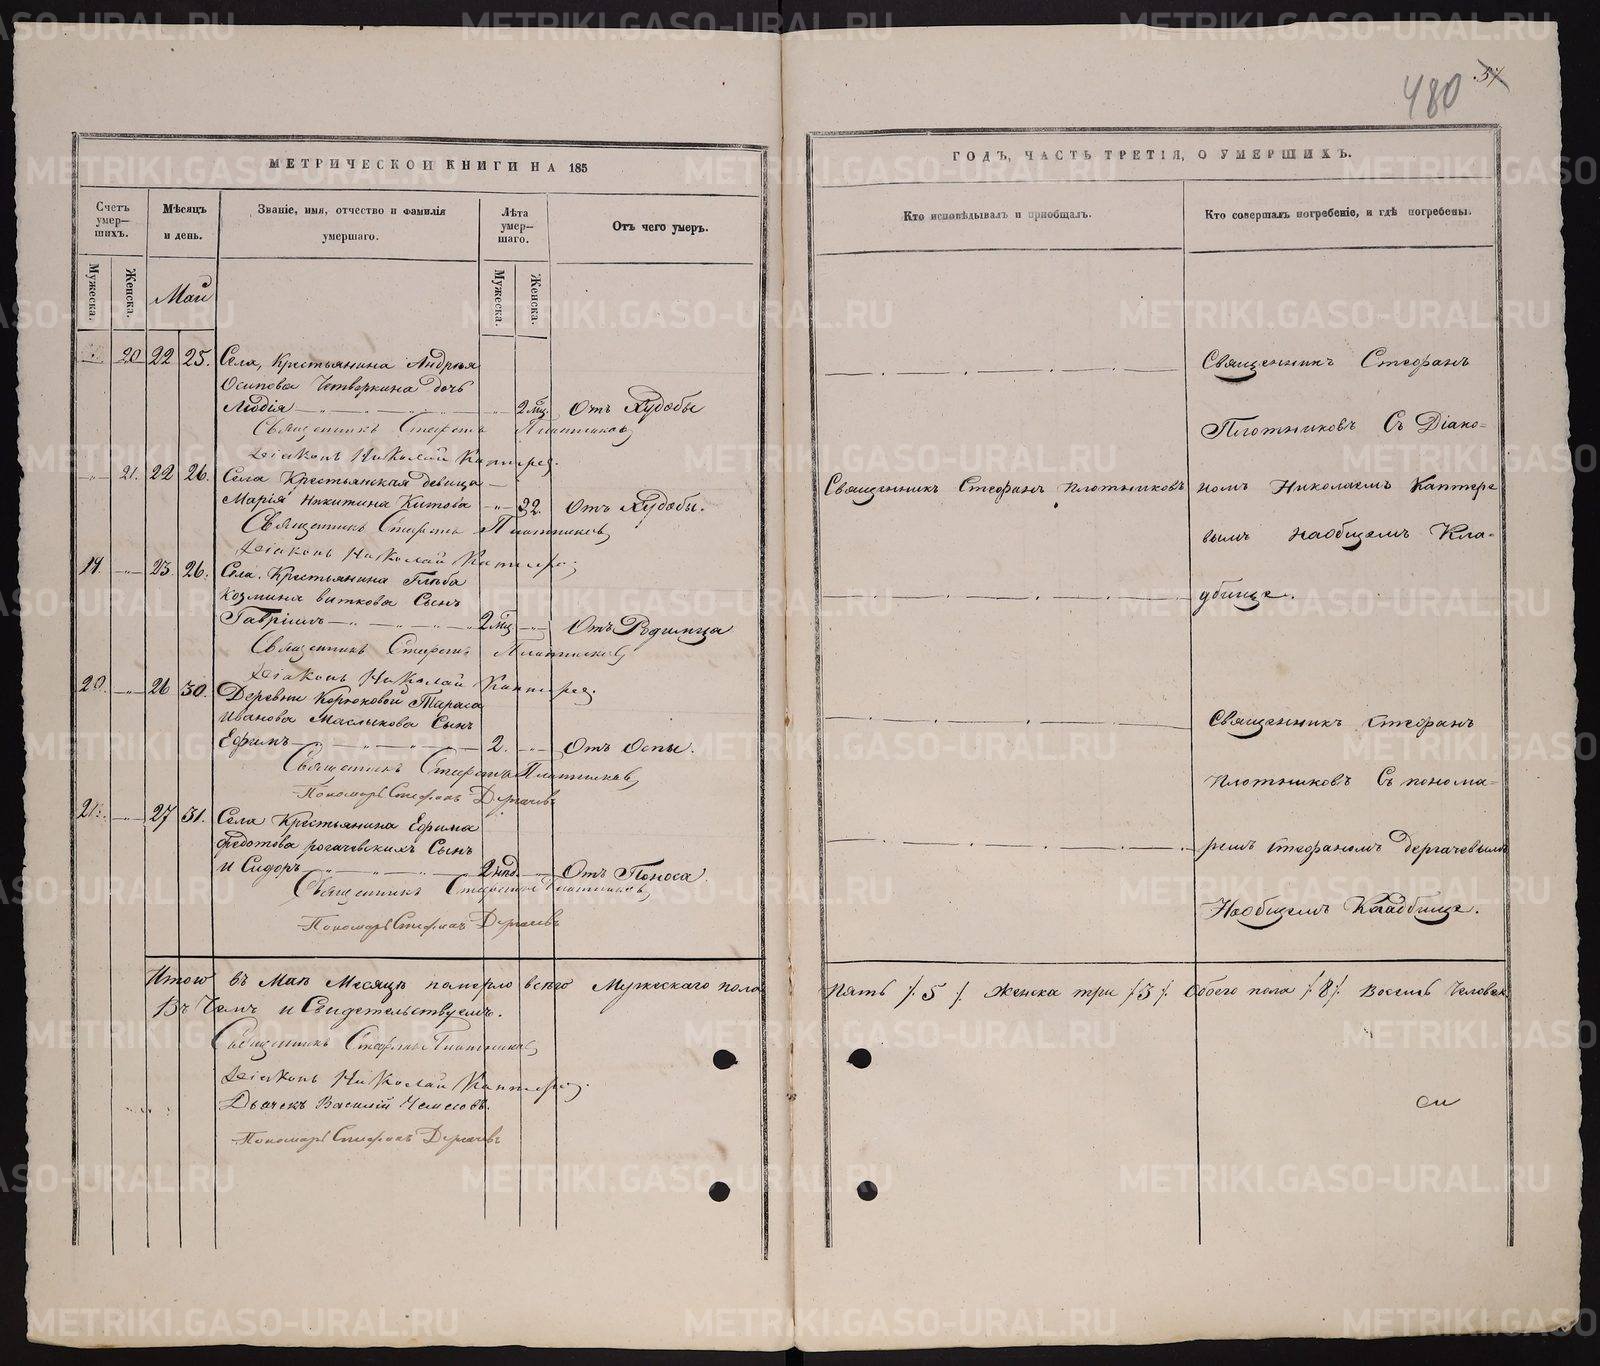 480 57
МЕТРИЧЕСКОЙ КНИГИ НА 185
Счетъ умер-шихъ.
Мужеска.
Женска.
Мѣсяцъ и день.
Званіе, имя, отчество и фамилія умершаго.
Лѣта умер-шаго.
Мужеска.
Женска.
Отъ чего умеръ.
Май
20 22 25. Села, Крестьянина Андрея
Осипова Четверкина дочь
Лидія 2 мц. Отъ Худобы
Священникъ Стефанъ Плотниковъ
Діаконъ Николай Каптерев
21. 22 26. Села Крестьянская девица
Марія Никитина Китова 32. Отъ Худобы.
Священникъ Стефанъ Плотниковъ
Діаконъ Николай Каптерев
19. 23. 26. Села. Крестьянина Глѣба
Козмина виткова Сынъ
Гавріилъ 2 мц Отъ Родимца
Священникъ Стефанъ Плотниковъ
Діаконъ Николай Каптерев
20. 26 30. Деревни Корюковой Тараса
Иванова Маслыкова Сынъ
Ефимъ 2. Отъ Оспы.
Священникъ Стефанъ Плотниковъ
Пономарь Стефанъ Дергачевъ
21. 27 31. Села Крестьянина Ефима
Федотова рогачевскихъ Сынъ
Исидоръ 2 нед. Отъ Поноса
Священникъ Стефанъ Плотниковъ
Пономарь Стефанъ Дергачевъ
Итого въ Маѣ Месяцѣ померло всего Мужескаго пола
Въ Чемъ и Свидетельствуемъ.
Священникъ Стефанъ Плотниковъ
Діаконъ Николай Каптерев
Дьячекъ Василій
Пономарь Стефанъ Дергачевъ
ГОДЪ, ЧАСТЬ ТРЕТІЯ, О УМЕРШИХЪ.
Кто исповѣдывалъ и пріобщалъ.
Кто совершалъ погребеніе, и гдѣ погребены.
Священникъ Стефанъ
Плотниковъ Съ Діако-
Священникъ Стефанъ Плотниковъ номъ Николаемъ Каптере
вымъ наобщемъ Кла-
дбище.
Священникъ Стефанъ
Плотниковъ Съ понома-
ремъ Стефаномъ дергачевымъ
Наобщемъ Кладбище.
Пять /. 5 /. Женска три /. 3 /. Обоего пола /. 8 /. Восемь Человек.
METRIKI.GASO-URAL.RU